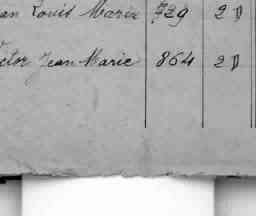 an Louis Marie 729 2 D
ictor Jean Marie 864 2 D